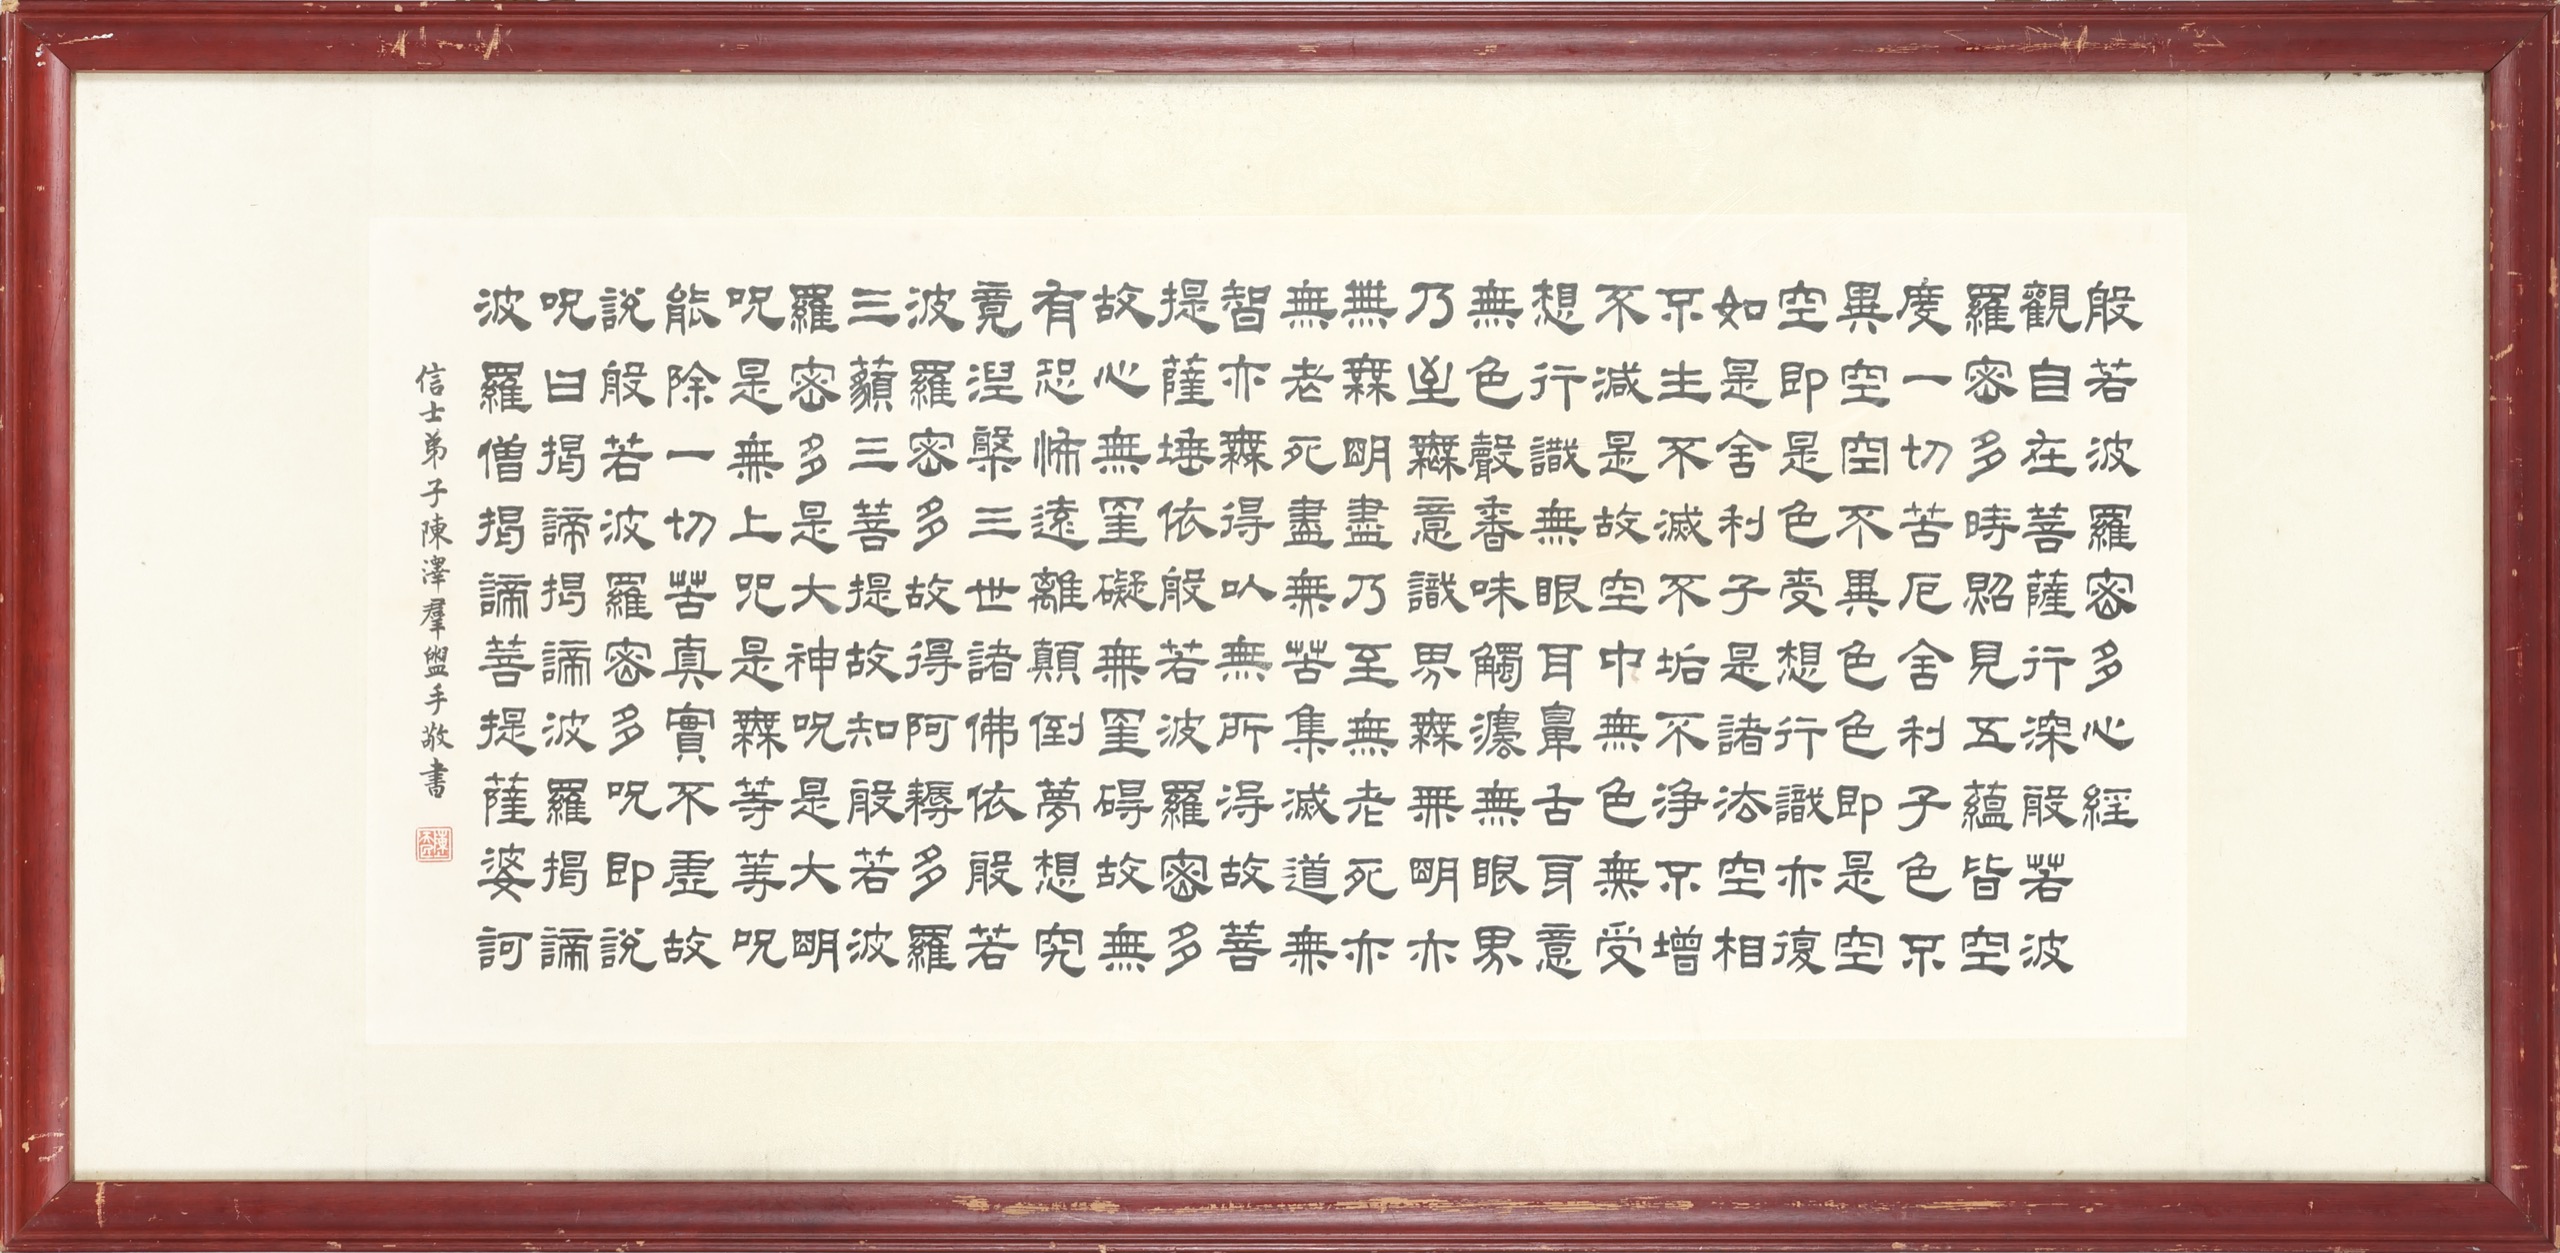 般若波羅密多心經
觀自在菩薩行深般若波
羅密多時照見五蘊皆空
度一切苦厄舍利子色不
異空空不異色色即是空
空即是色受想行識亦復
如是舍利子是諸法空相
不生不滅不垢不淨不增
不減是故空中無色無受
想行識無眼耳鼻舌身意
無色聲香味觸法無眼界
乃至無意識界無無明亦
無無明盡乃至無老死亦
無老死盡無苦集滅道無
智亦無得以無所得故菩
提薩埵依般若波羅密多
故心無罣礙無罣碍故無
有恐怖遠離顛倒夢想究
竟涅槃三世諸佛依般若
波羅密多故得阿耨多羅
三藐三菩提故知般若波
羅密多是大神呪是大明
呪是無上咒是無等等呪
能除一切苦真實不虛故
說般若波羅密多呪即說
呪曰揭諦揭諦波羅揭諦
波羅僧揭諦菩提薩婆訶
信士弟子陳澤羣盥手敬書